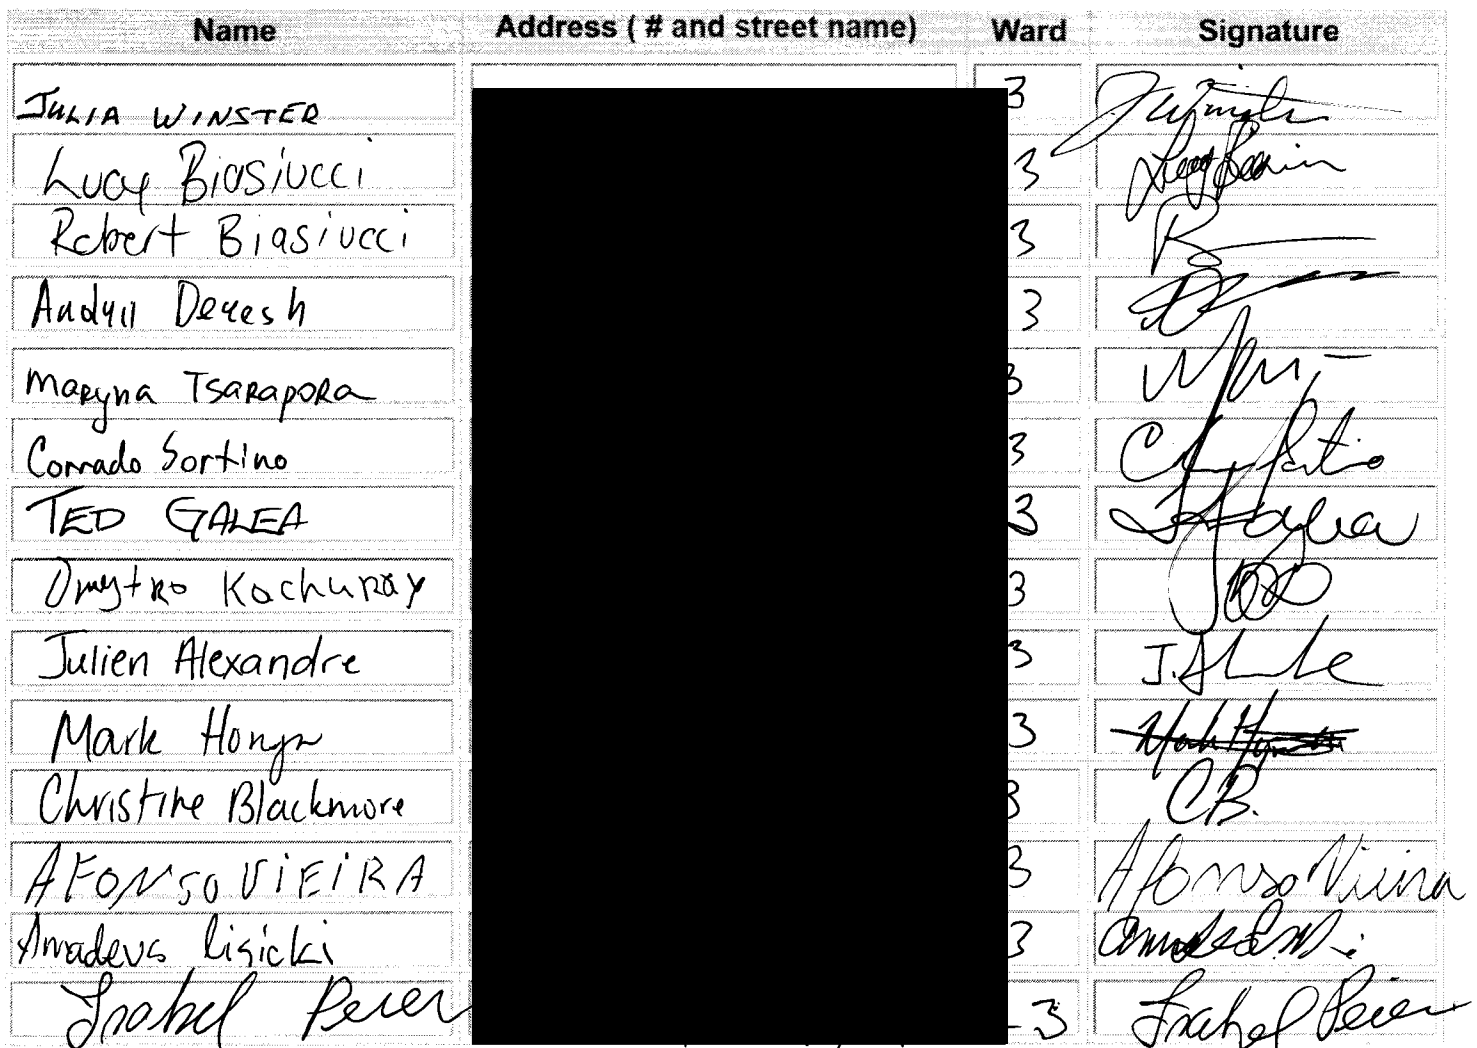 Name Address ( # and street name) Ward Signature
JULIA WINSTER 3
Lucy Biasiucci 3
Robert Biasiucci 3
Andyii Deresh 3
Maryna Tsarapora 3
Corrado Sortino 3
TED GALEA 3
Dmytro Kachuray 3
Julien Alexandre 3 J.
Mark 3
Christine Blackmore 3 C.B.
AFONSO VIEIRA 3 Afonso Vieira
Amadeus Lisicki 3
Isabel 3 Isabel